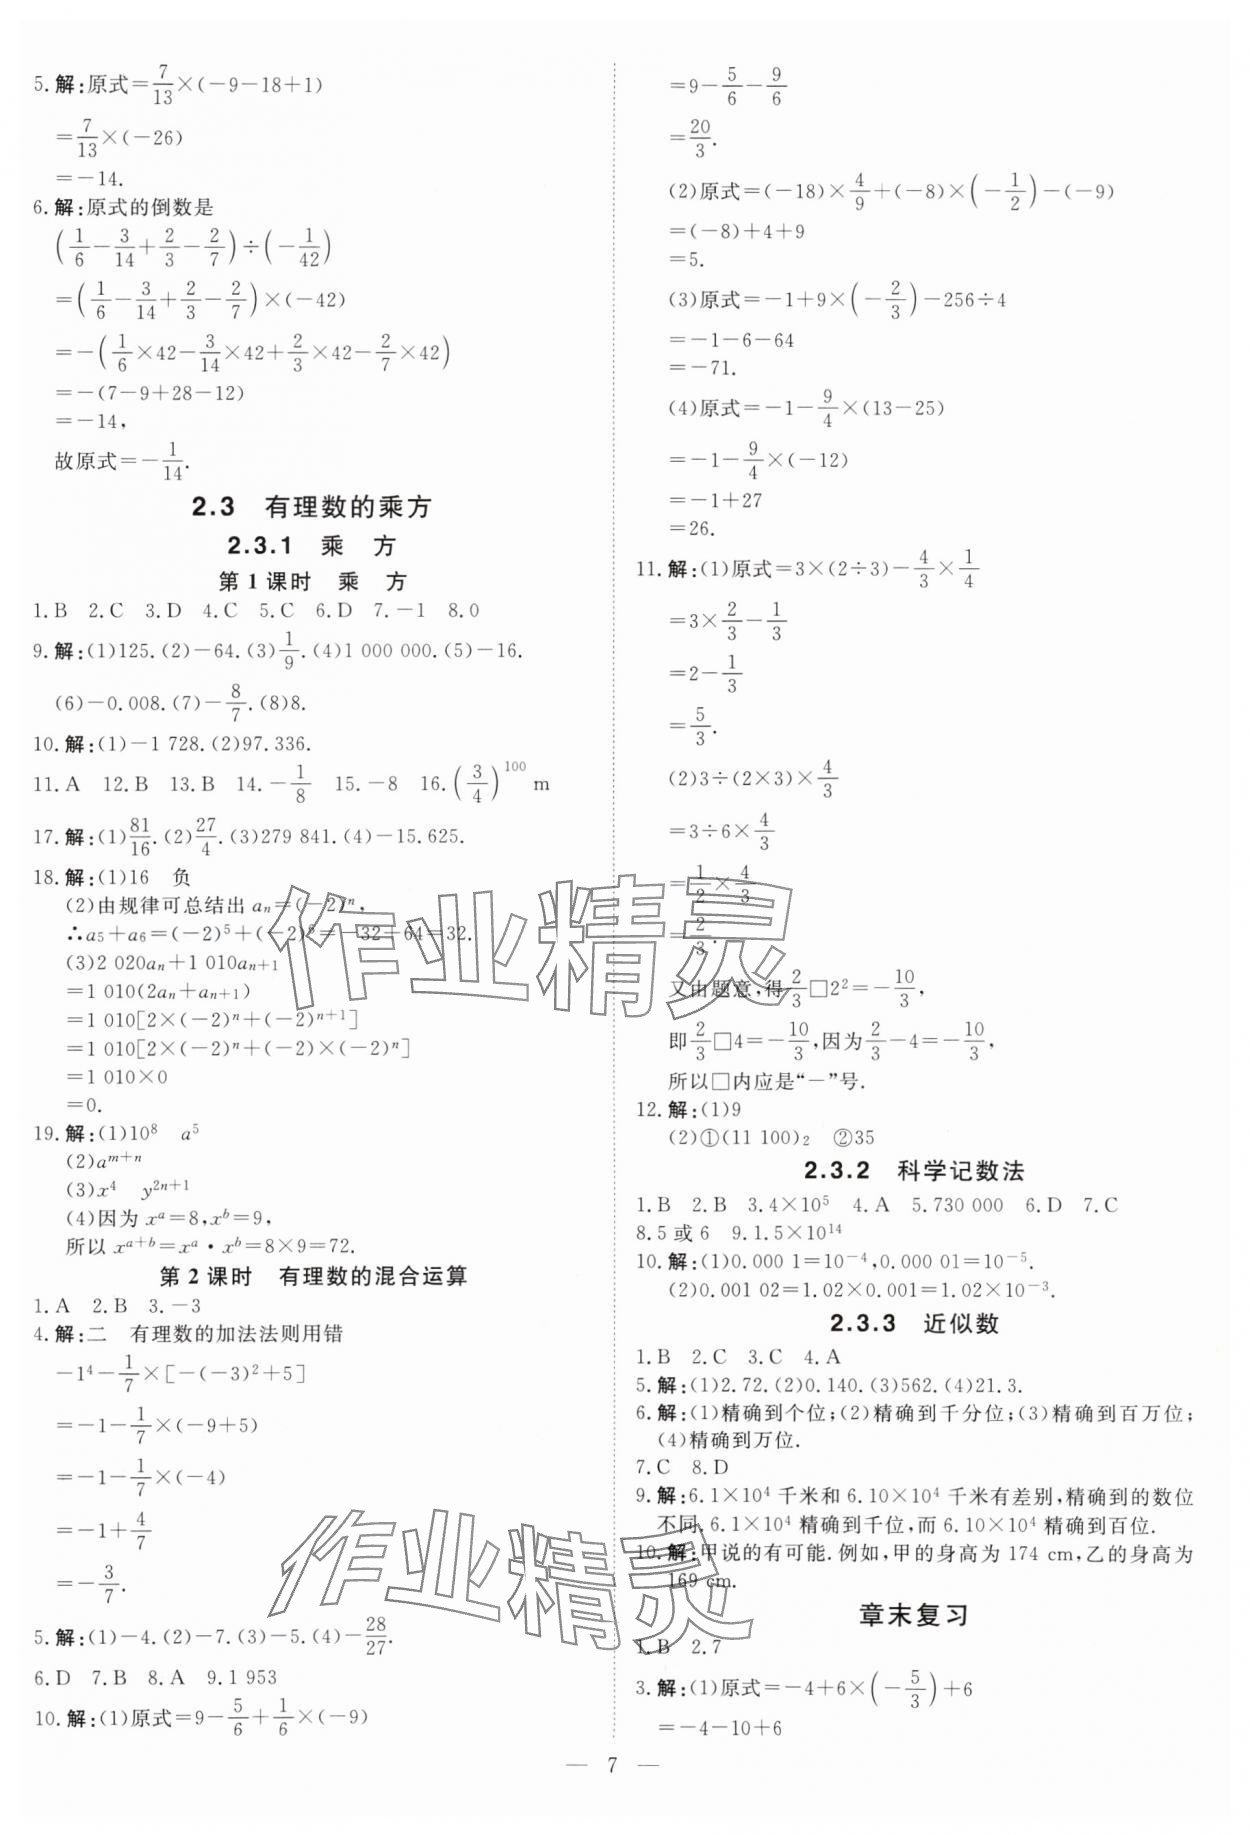 5.解:原式=7/13×(-9-18+1)
=7/13×(-26)
=-14.
6.解:原式的倒数是
(1/6-3/14+2/3-2/7)÷(-1/42)
=(1/6-3/14+2/3-2/7)×(-42)
=-(1/6×42-3/14×42+2/3×42-2/7×42)
=-(7-9+28-12)
=-14,
故原式=-1/14.
2.3 有理数的乘方
2.3.1 乘 方
第1课时 乘 方
1.B 2.C 3.D 4.C 5.C 6.D 7.-1 8.0
9.解:(1)125.(2)-64.(3)1/9.(4)1 000 000.(5)-16.
(6)-0.008.(7)-8/7.(8)8.
10.解:(1)-1 728.(2)97.336.
11.A 12.B 13.B 14.-1/8 15.-8 16.(3/4)^100 m
17.解:(1)81/16.(2)27/4.(3)279 841.(4)-15.625.
18.解:(1)16 负
(2)由规律可总结出 aₙ=(-2)ⁿ,
∴a₅+a₆=(-2)⁵+(-2)⁶=-32+64=32.
(3)2 020aₙ+1 010aₙ₊₁
=1 010(2aₙ+aₙ₊₁)
=1 010[2×(-2)ⁿ+(-2)ⁿ⁺¹]
=1 010[2×(-2)ⁿ+(-2)×(-2)ⁿ]
=1 010×0
=0.
19.解:(1)10⁸ a⁵
(2)aᵐ⁺ⁿ
(3)x⁴ y²ⁿ⁺¹
(4)因为 xᵃ=8,xᵇ=9,
所以 xᵃ⁺ᵇ=xᵃ·xᵇ=8×9=72.
第2课时 有理数的混合运算
1.A 2.B 3.-3
4.解:二 有理数的加法法则用错
-1⁴-1/7×[-(-3)²+5]
=-1-1/7×(-9+5)
=-1-1/7×(-4)
=-1+4/7
=-3/7.
5.解:(1)-4.(2)-7.(3)-5.(4)-28/27.
6.D 7.B 8.A 9.1 953
10.解:(1)原式=9-5/6+1/6×(-9)
=9-5/6-9/6
=20/3.
(2)原式=(-18)×4/9+(-8)×(-1/2)-(-9)
=(-8)+4+9
=5.
(3)原式=-1+9×(-2/3)-256÷4
=-1-6-64
=-71.
(4)原式=-1-9/4×(13-25)
=-1-9/4×(-12)
=-1+27
=26.
11.解:(1)原式=3×(2÷3)-4/3×1/4
=3×2/3-1/3
=2-1/3
=5/3.
(2)3÷(2×3)×4/3
=3÷6×4/3
=1/2×4/3
=2/3.
又由题意,得2/3□2²=-10/3,
即2/3□4=-10/3,因为2/3-4=-10/3,
所以□内应是“-”号.
12.解:(1)9
(2)①(11 100)₂ ②35
2.3.2 科学记数法
1.B 2.B 3.4×10⁵ 4.A 5.730 000 6.D 7.C
8.5或6 9.1.5×10¹⁴
10.解:(1)0.000 1=10⁻⁴,0.000 01=10⁻⁵.
(2)0.001 02=1.02×0.001=1.02×10⁻³.
2.3.3 近似数
1.B 2.C 3.C 4.A
5.解:(1)2.72.(2)0.140.(3)562.(4)21.3.
6.解:(1)精确到个位;(2)精确到千分位;(3)精确到百万位;
(4)精确到万位.
7.C 8.D
9.解:6.1×10⁴千米和6.10×10⁴千米有差别,精确到的数位
不同.6.1×10⁴精确到千位,而6.10×10⁴精确到百位.
10.解:甲说的有可能.例如,甲的身高为174 cm,乙的身高为
169 cm.
章末复习
1.B 2.7
3.解:(1)原式=-4+6×(-5/3)+6
=-4-10+6
— 7 —
作业精灵
作业精灵